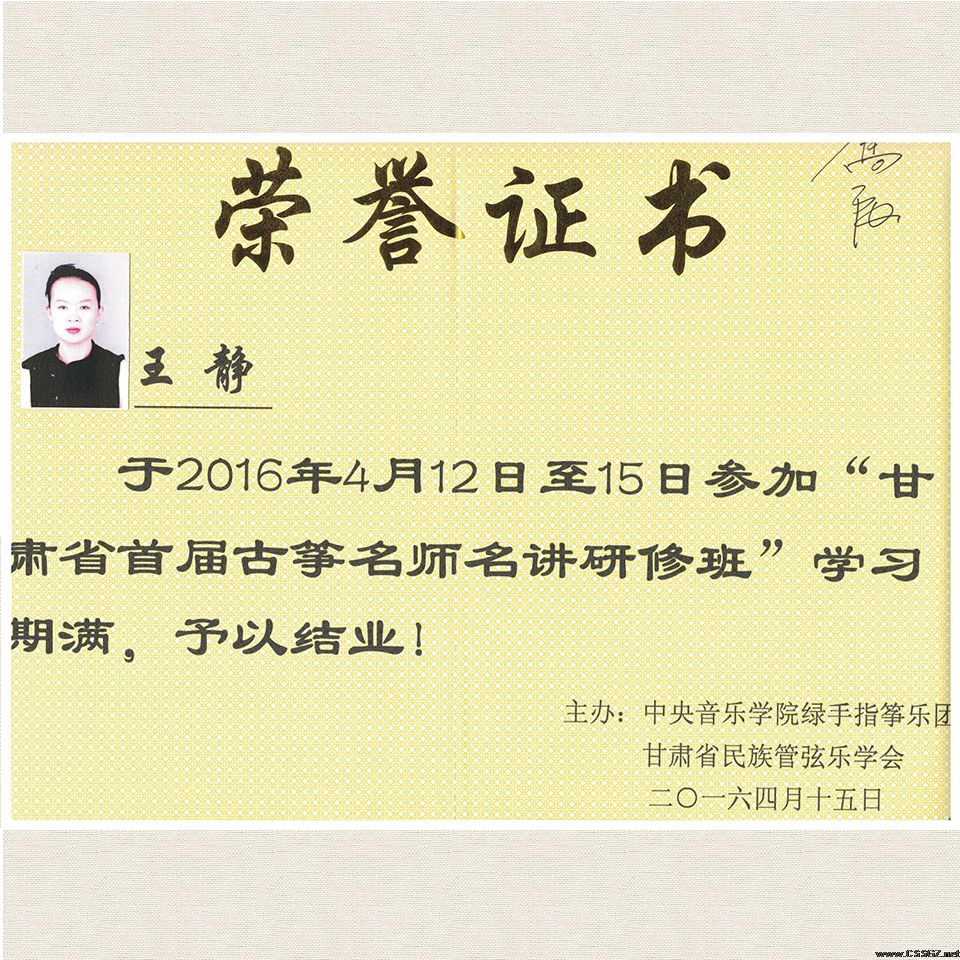 荣誉证书
王 静
于2016年4月12日至15日参加“甘
肃省首届古筝名师名讲研修班”学习
期满，予以结业！
主办：中央音乐学院绿手指筝乐团
甘肃省民族管弦乐学会
二〇一六四月十五日